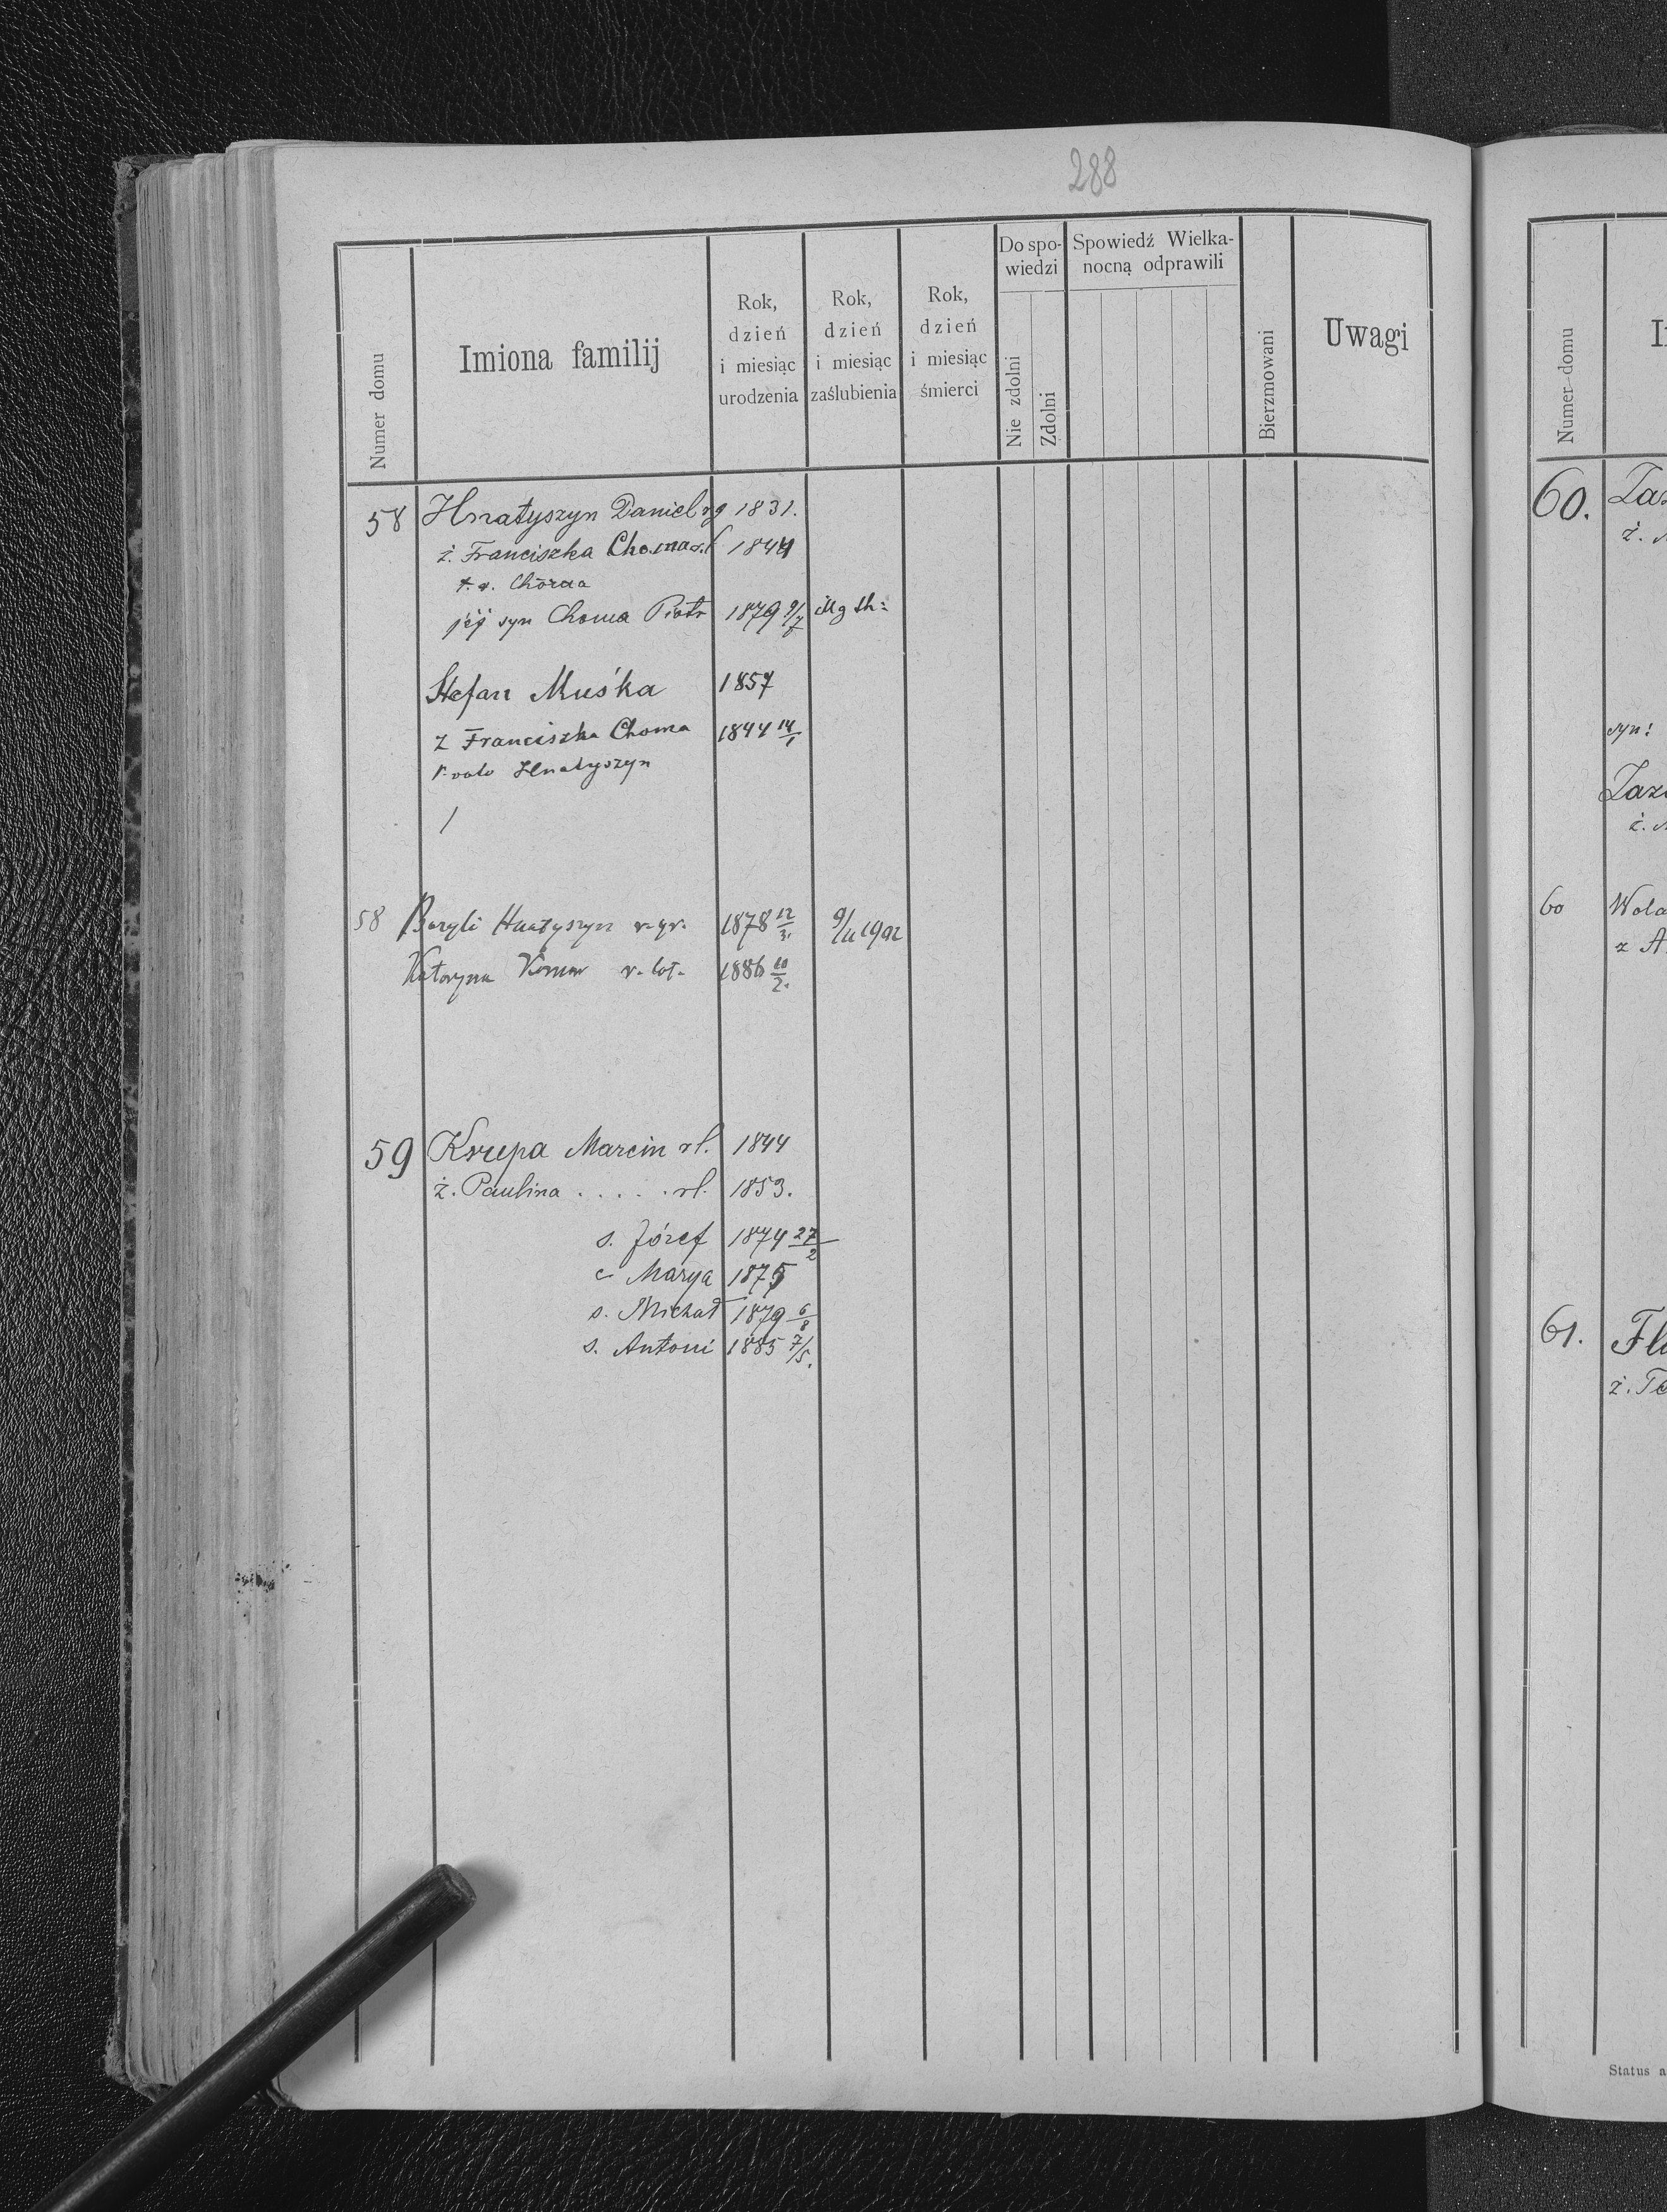 288
Numer domu
Imiona familij
Rok, dzień i miesiąc urodzenia
Rok, dzień i miesiąc zaślubienia
Rok, dzień i miesiąc śmierci
Do spowiedzi
Nie zdolni
Zdolni
Spowiedź Wielkanocną odprawili
Bierzmowani
Uwagi
58 Hnatyszyn Daniel rg 1831.
ż. Franciszka Choma rł 1844
jej syn Choma Piotr 1879 9/7
Stefan Muśka 1857
z Franciszka Choma 1844 14/1
1° voto Hnatyszyn
58 Bazyli Hnatyszyn r. gr. 1878 12/3. 9/11 1902
Katarzyna r. łat. 1886 10/2.
59 Krupa Marcin rł. 1844
ż. Paulina . . . . . rł. 1853.
s. Józef 1874 27/2
c. Marya 1875
s. Michał 1879 6/8
s. Antoni 1885 7/5.
Numer domu
60.
ż.
syn:
60
z A
61.
Status a